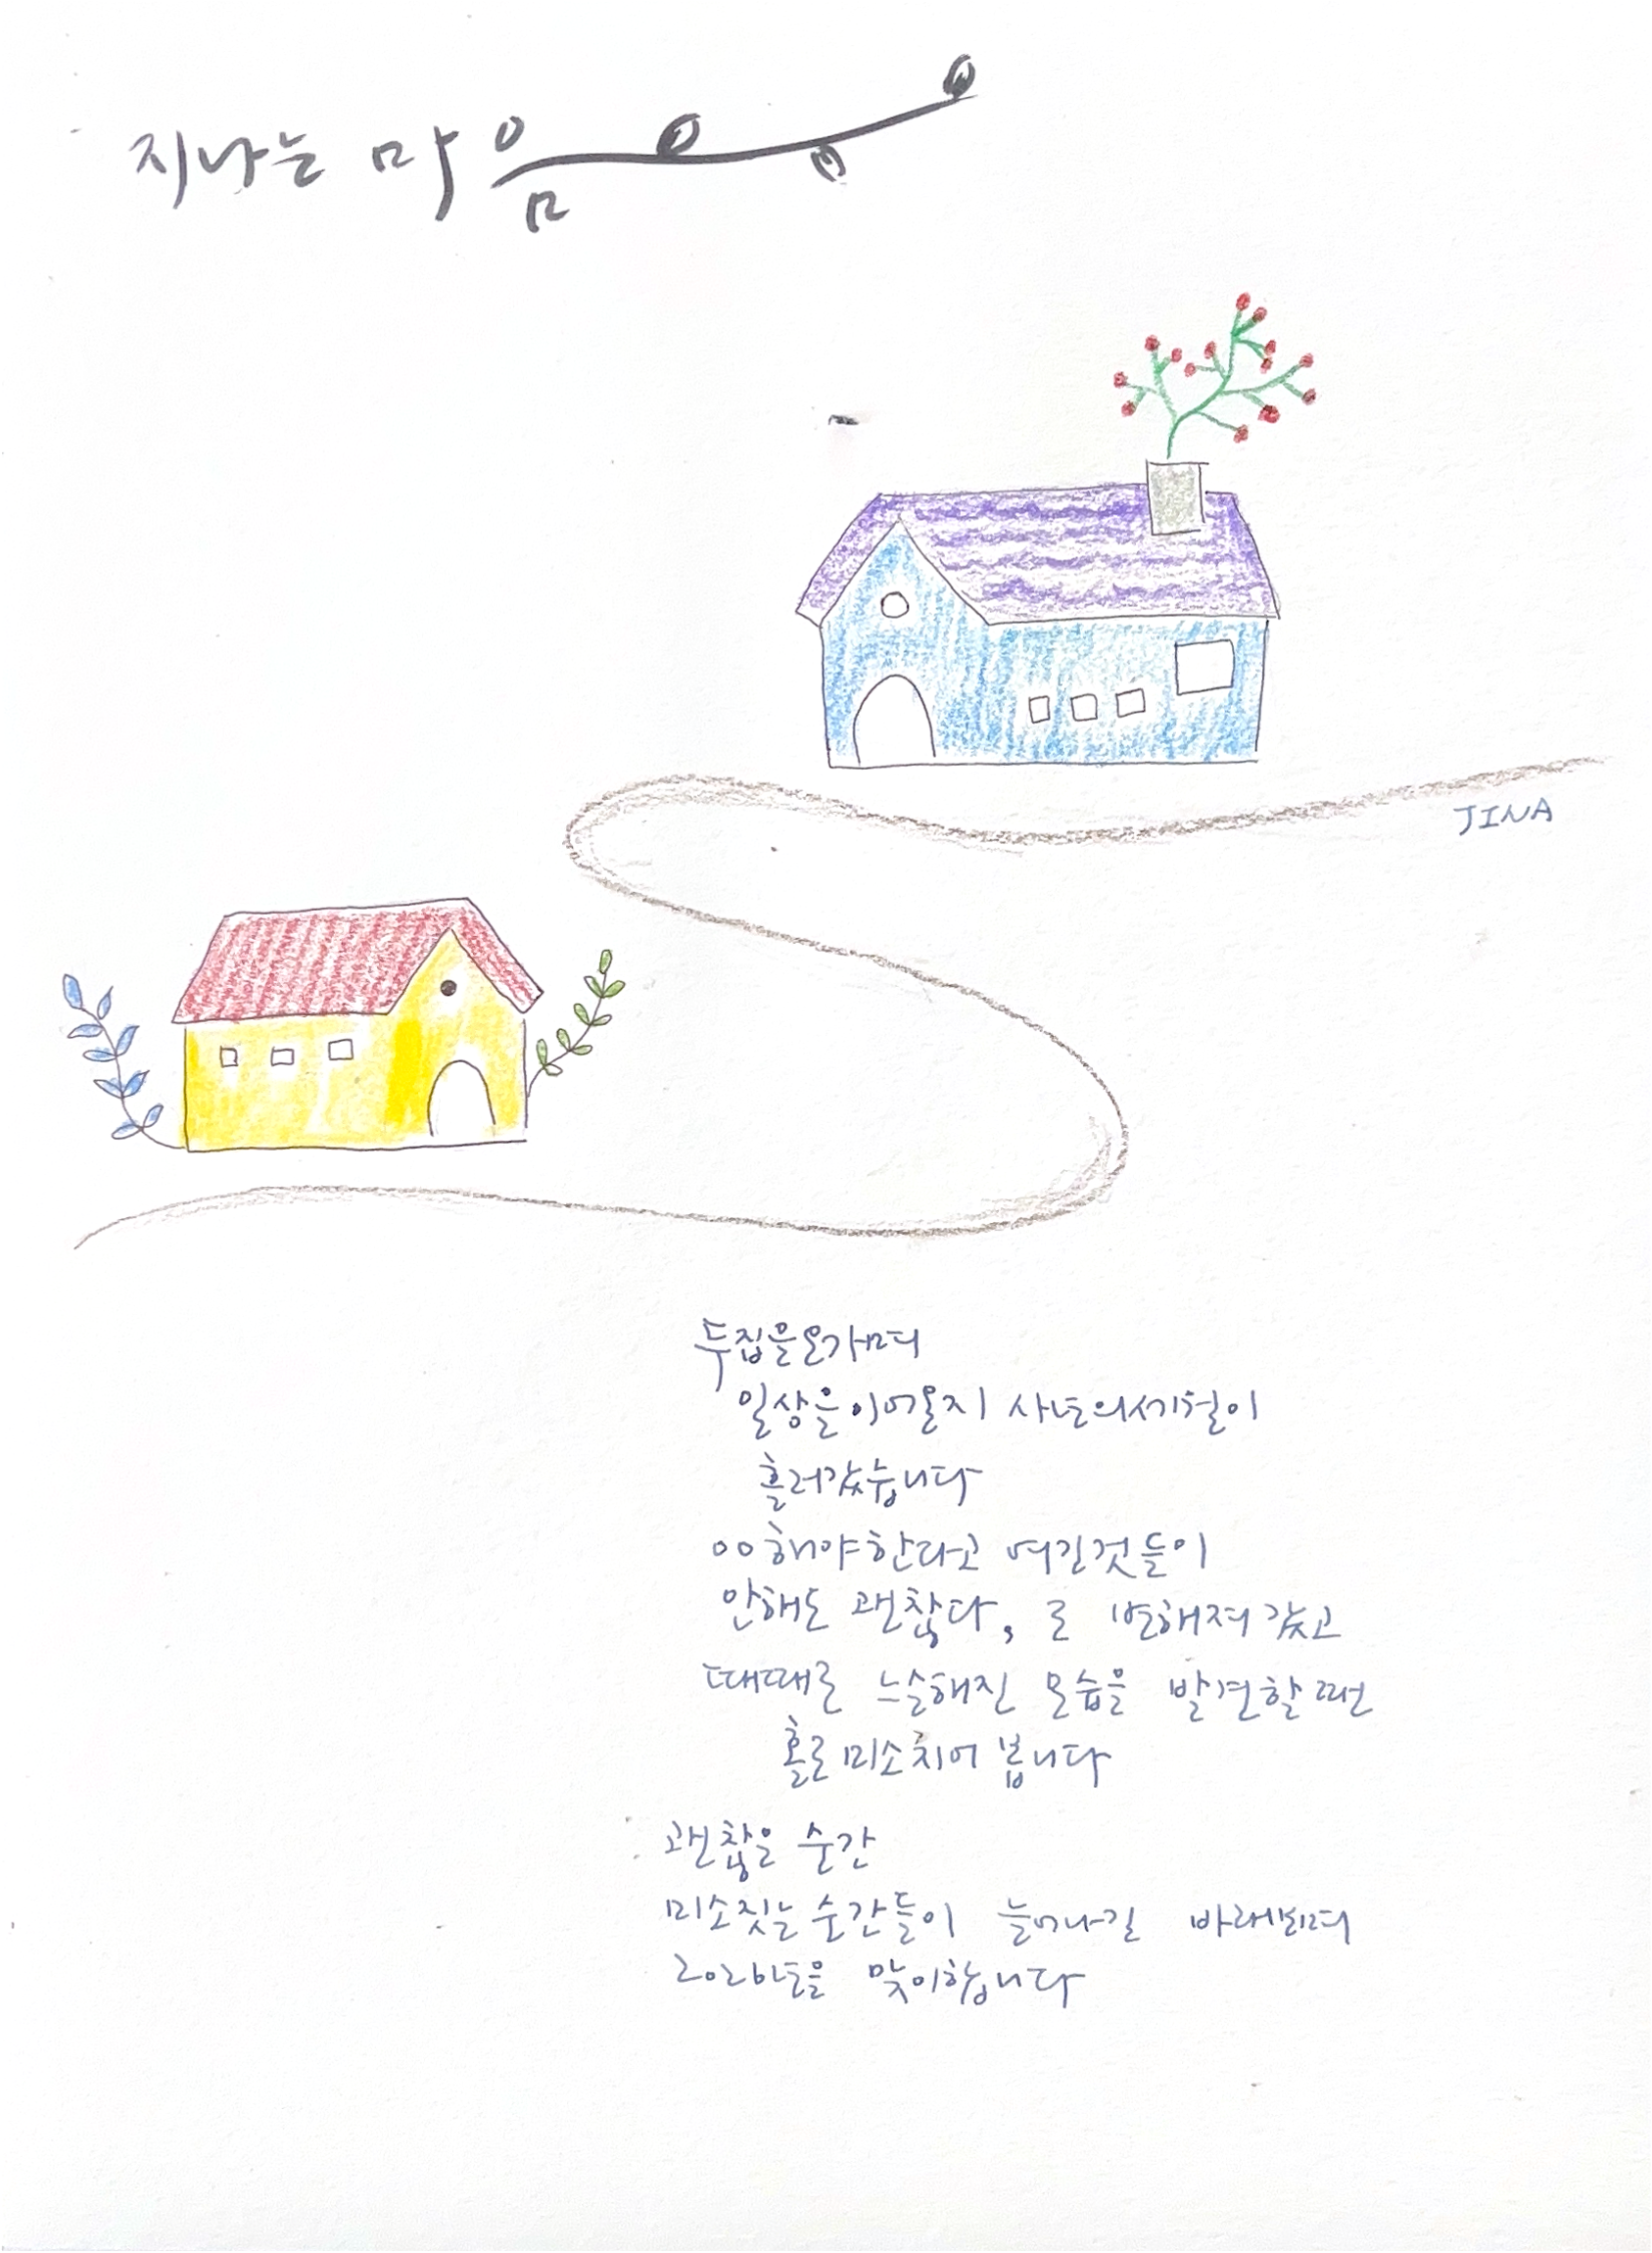 지나는 마음
JINA
두집을오가며
일상을이어온지 사년의세월이
흘러갔습니다
00해야한다고 여긴것들이
안해도 괜찮다, 로 변해져갔고
때때로 느슨해진 모습을 발견할때면
홀로미소지어 봅니다
괜찮은 순간
미소짓는순간들이 늘어나길 바래보며
2026년을 맞이합니다